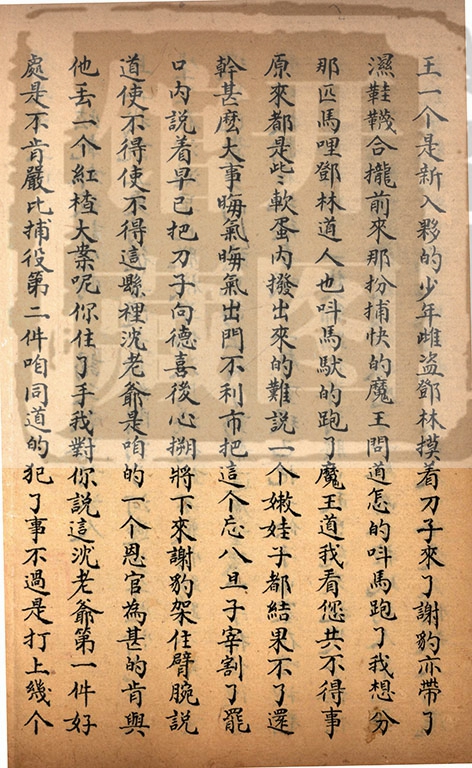 王一个是新入夥的少年雌盗鄧林摸着刀子來了謝豹亦帶了
濕鞋韈合攏前來那扮捕快的魔王問道怎的呌馬跑了我想分
那匹馬哩鄧林道人也呌馬馱的跑了魔王道我看您共不得事
原來都是些軟蛋內撥出來的難說一个嫩娃子都結果不了還
幹甚麽大事晦氣晦氣出門不利市把這个忘八旦子宰割了罷
口內説着早已把刀子向德喜後心搠將下來謝豹架住臂腕説
道使不得使不得這縣裡沈老爺是咱的一个恩官為甚的肯與
他丢一个紅楂大案呢你住了手我對你説這沈老爺第一件好
處是不肯嚴比捕役第二件咱同道的犯了事不過是打上幾个